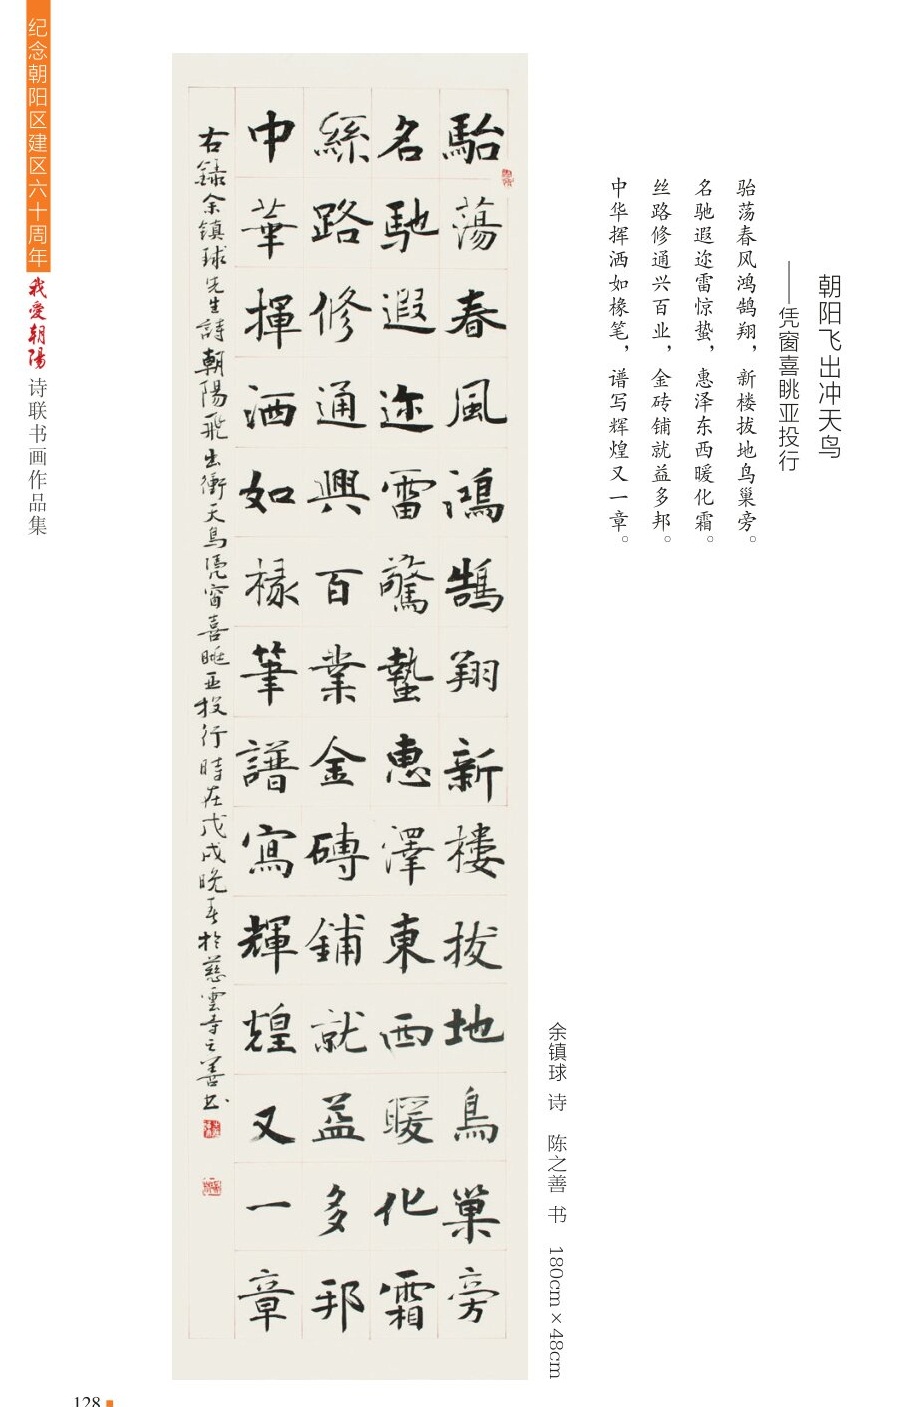 纪念朝阳区建区六十周年
我爱朝陽
诗联书画作品集
朝阳飞出冲天鸟
——凭窗喜眺亚投行
骀荡春风鸿鹄翔，新楼拔地鸟巢旁。
名驰遐迩雷惊蛰，惠泽东西暖化霜。
丝路修通兴百业，金砖铺就益多邦。
中华挥洒如椽笔，谱写辉煌又一章。
駘蕩春風鴻鵠翔新樓拔地鳥巢旁
名馳遐迩雷驚蟄惠澤東西暖化霜
絲路修通興百業金磚鋪就益多邦
中華揮洒如椽筆譜寫輝煌又一章
右録余镇球先生詩朝陽飛出衝天鳥凭窗喜眺亚投行時在戊戌晚春於慈雲寺之善书
余镇球 诗 陈之善 书 180cm×48cm
128